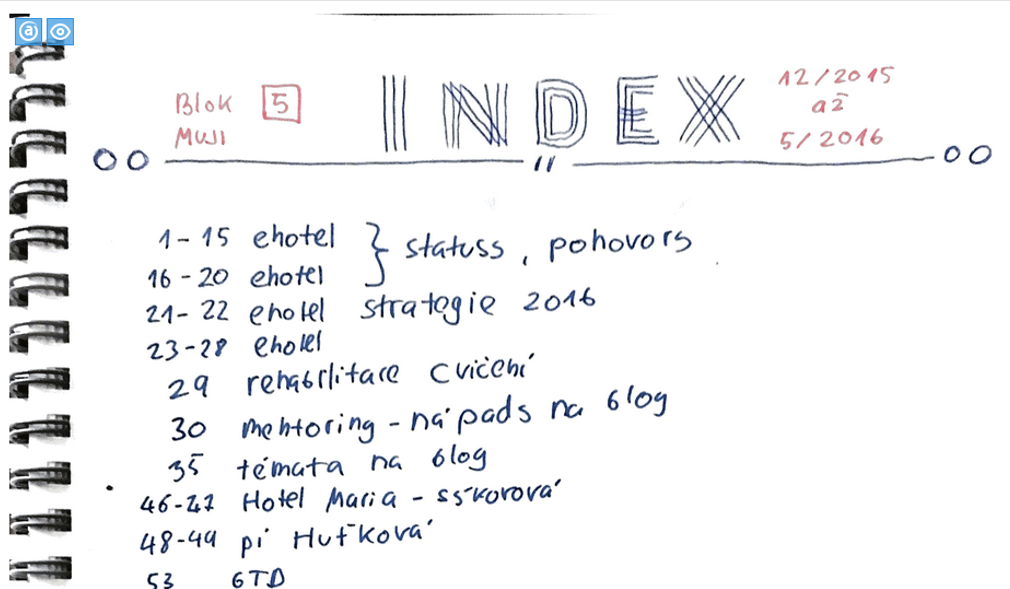 Blok 5
MUJI
INDEX
12/2015
až
5/2016
1-15 ehotel } statusy, pohovory
16-20 ehotel
21-22 ehotel strategie 2016
23-28 ehotel
29 rehabilitace cvičení
30 mentoring - nápady na blog
35 témata na blog
46-47 Hotel Maria - Sýkorová
48-49 pí Huťková
53 GTD